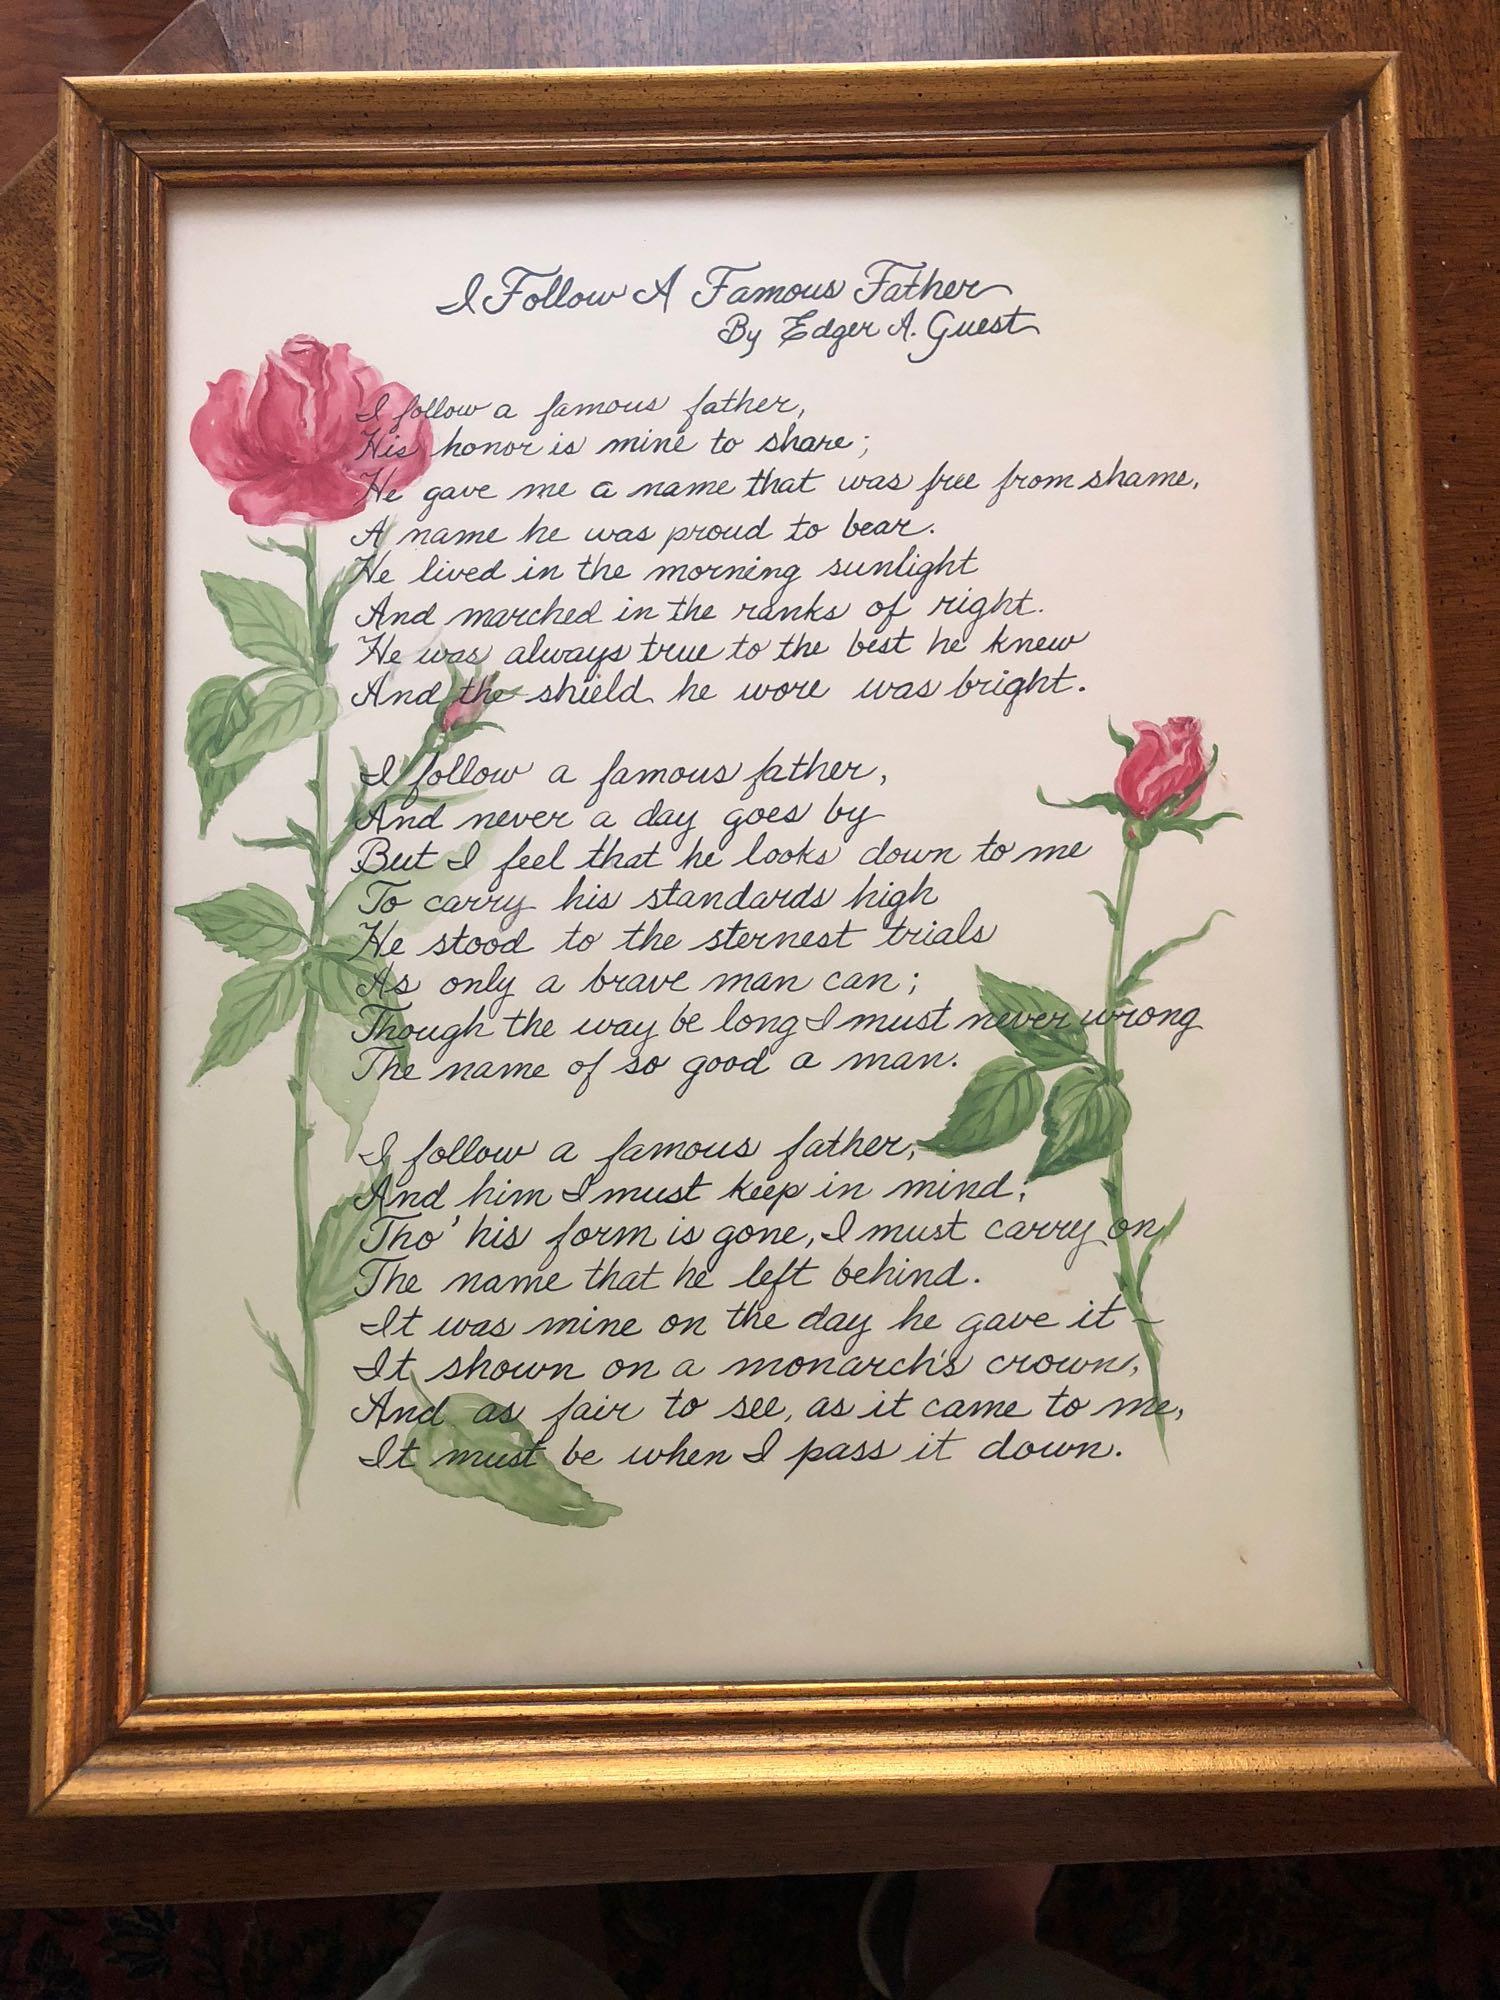 I Follow A Famous Father
By Edger A. Guest
I follow a famous father,
His honor is mine to share;
He gave me a name that was free from shame,
A name he was proud to bear.
He lived in the morning sunlight
And marched in the ranks of right.
He was always true to the best he knew
And the shield he wore was bright.
I follow a famous father,
And never a day goes by
But I feel that he looks down to me
To carry his standards high
He stood to the sternest trials
As only a brave man can;
Though the way be long I must never wrong
The name of so good a man.
I follow a famous father,
And him I must keep in mind;
Tho' his form is gone, I must carry on
The name that he left behind.
It was mine on the day he gave it ~
It shown on a monarch's crown,
And as fair to see, as it came to me,
It must be when I pass it down.